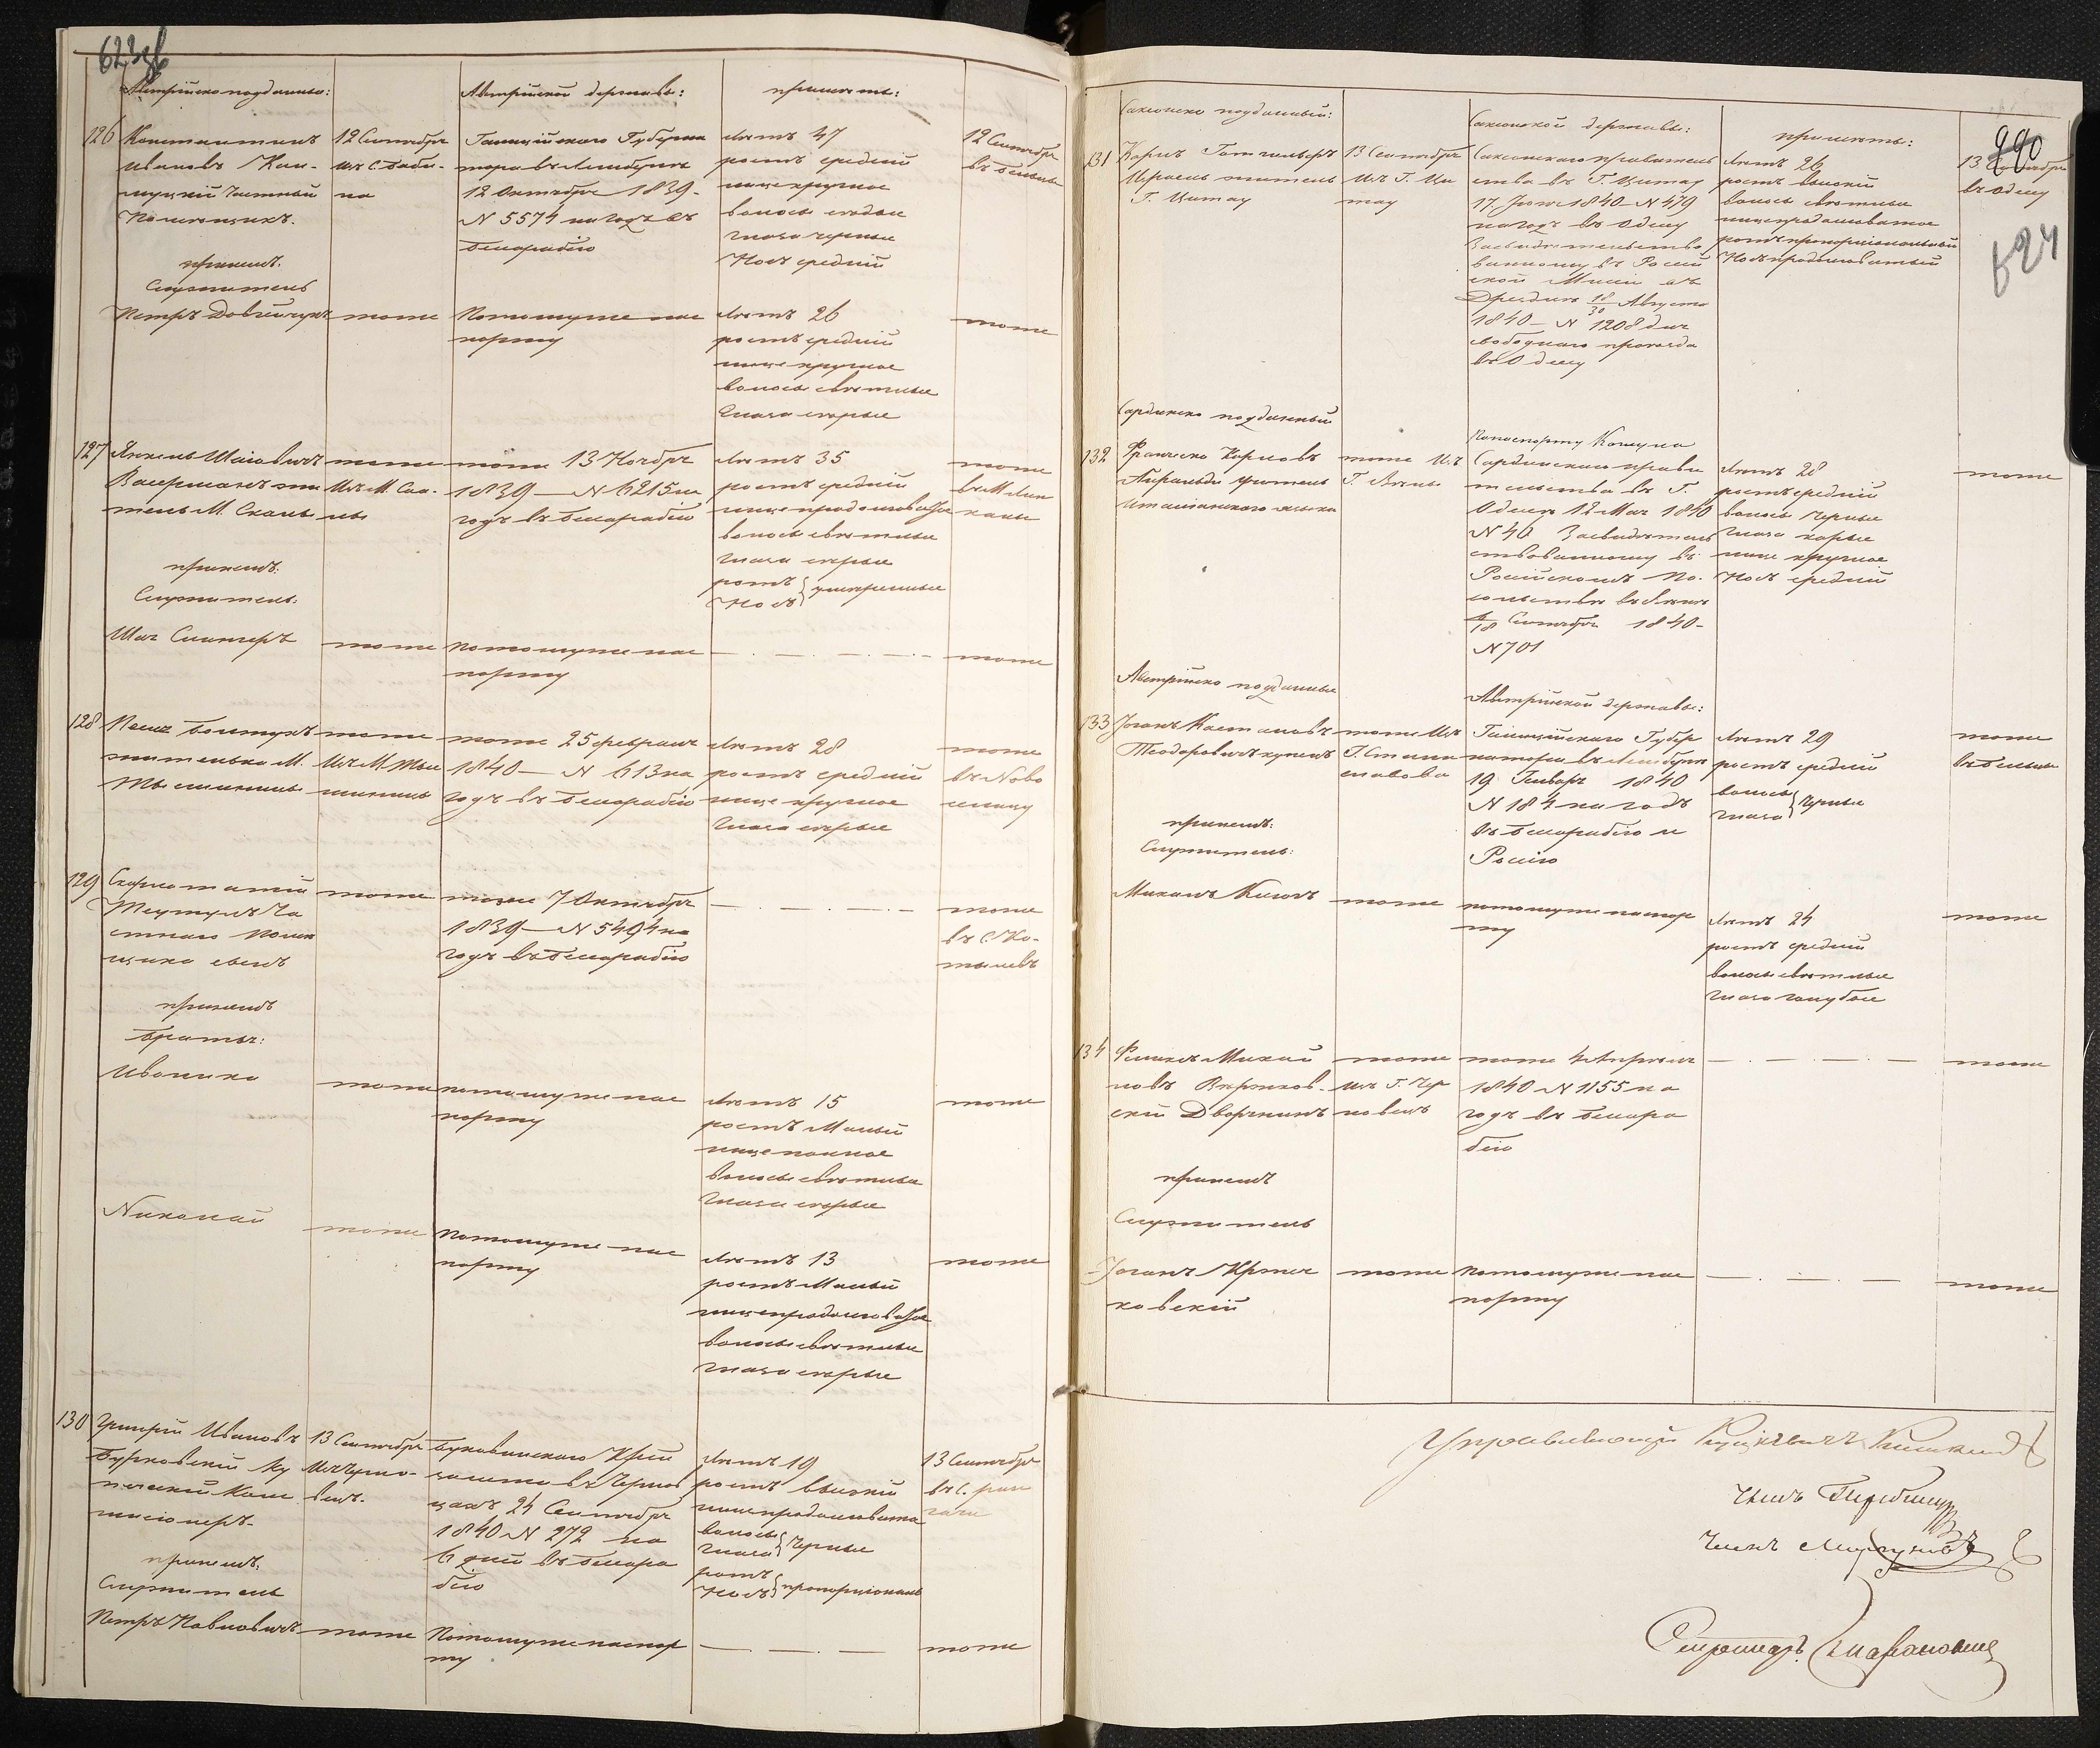 623об
Австрійско подданные:
Австрійской державы:
приметы:
126
Константинъ
Ивановъ
Частный
Помещикъ.
12 Сентября
изъ С.
на
Галиційскаго Губерна
тора въ Лембурге
12 Октября 1839-
N 5574 на годъ въ
Бесарабію
Летъ 47
ростъ средній
лице круглое
волосы седые
глаза черные
Носъ средній
12 Сентября
въ Бельцы
принемъ.
Служитель
Петръ
тоже
По томуже пас
порту
Летъ 26
ростъ средній
лице круглое
волосы светлые
Глаза серые
тоже
127
Янкель Шаіовичъ
Васерманъ жи
тель М. Скалы
тоже
изъ М. Ска-
лы
тоже 13 Ноября
1839 — N 6215 на
годъ въ Бесарабію
Летъ 35
ростъ средній
лице продолговатое
волосы светлые
глаза серые
ротъ
Носъ } умеренные
тоже
въ М. Лип
каны
принемъ:
Служитель:
Шая
тоже
По томуже пас
порту
тоже
128
жителька М.
тоже
изъ М.
тоже 25 февраля
1840 — N 613 на
годъ въ Бесарабію
Летъ 28
ростъ средній
лице круглое
глаза серые
тоже
въ Ново
селицу
129
Ча
стнаго Поме
щика сынъ
тоже
тоже 7 Октября
1839 — N 5494 на
годъ въ Бесарабію
тоже
въ С. Ко-
тылевъ
принемъ
братья:
Иванико
тоже
по томуже пас
порту
Летъ 15
ростъ Малый
лице полное
волосы светлые
глаза серые
тоже
Николай
тоже
По томуже пас
порту
Летъ 13
ростъ Малый
лице продолговатое
волосы светлые
глаза серые
тоже
130
Григорій Ивановъ
Бурковскій Ку
печескій Коми
сіонеръ-
13 Сентября
изъ Черно-
вецъ.
Буковинскаго Крей
замта въ Чернов
цахъ 24 Сентября
1840 N 272 на
6 дней въ Бесара
бію
Летъ 19
ростъ высокій
лице продолговатое
волосы
глаза } черные
ротъ
Носъ } пропорціональн
13 Сентября
въ С.
принемъ:
Служитель
Петръ Павловичъ
тоже
По томуже паспор
ту
тоже
990
624
Саксонско подданный:
Саксонской державы:
приметы:
131
Карлъ Готгильфъ
Израель житель
Г. Цитау
13 Сентября
изъ Г. Ци
тау
Саксонскаго правитель
ства въ Г. Цитау
17 Іюля 1840 N 479
на годъ въ Одессу
Засвидетельство
ванному въ Россій
ской Мисіи въ
Дрездене 18/30 Августа
1840 — N 1208 для
свободнаго проезда
въ Одессу
Летъ 26
ростъ высокій
волосы светлые
лице продолговатое
ротъ пропорціональный
Носъ продолговатый
13 Сентября
въ Одессу
Сардинско подданный
132
Франческо Карловъ
житель
италіанскаго языка
тоже изъ
Г. Вены
По паспорту Консула
Сардинскаго прави
тельства въ Г.
Одессе 12 Мая 1840
N 40 Засвидетель
ствованному въ
Россійскомъ По-
сольстве въ Вене
6/18 Сентября 1840-
N 701
Летъ 28
ростъ средній
волосы черные
глаза карые
лице круглое
Носъ средній
тоже
Австрійско подданные
Австрійской державы:
133
Іоганъ
Теодоровичъ купецъ
тоже изъ
Г. Стани
славова
Галиційскаго Губер
натора въ Лембурге
19 Генваря 1840
N 184 на годъ
въ Бесарабію и
Россію
Летъ 29
ростъ средній
волосы
глаза } черные
тоже
въ Бельцы
принемъ:
Служитель:
Михаилъ
тоже
по томуже паспор
ту
Летъ 24
ростъ средній
волосы светлые
глаза голубые
тоже
134
Феликсъ Михай
ловъ
скій Дворянинъ
тоже
изъ Г. Чер
новецъ
тоже 4 Апреля
1840 N 1155 на
годъ въ Бесара
бію
тоже
принемъ
Служитель
Іоганъ
ковскій
тоже
По томуже пас
порту
тоже
Управляющій
Членъ
Членъ
Секретарь